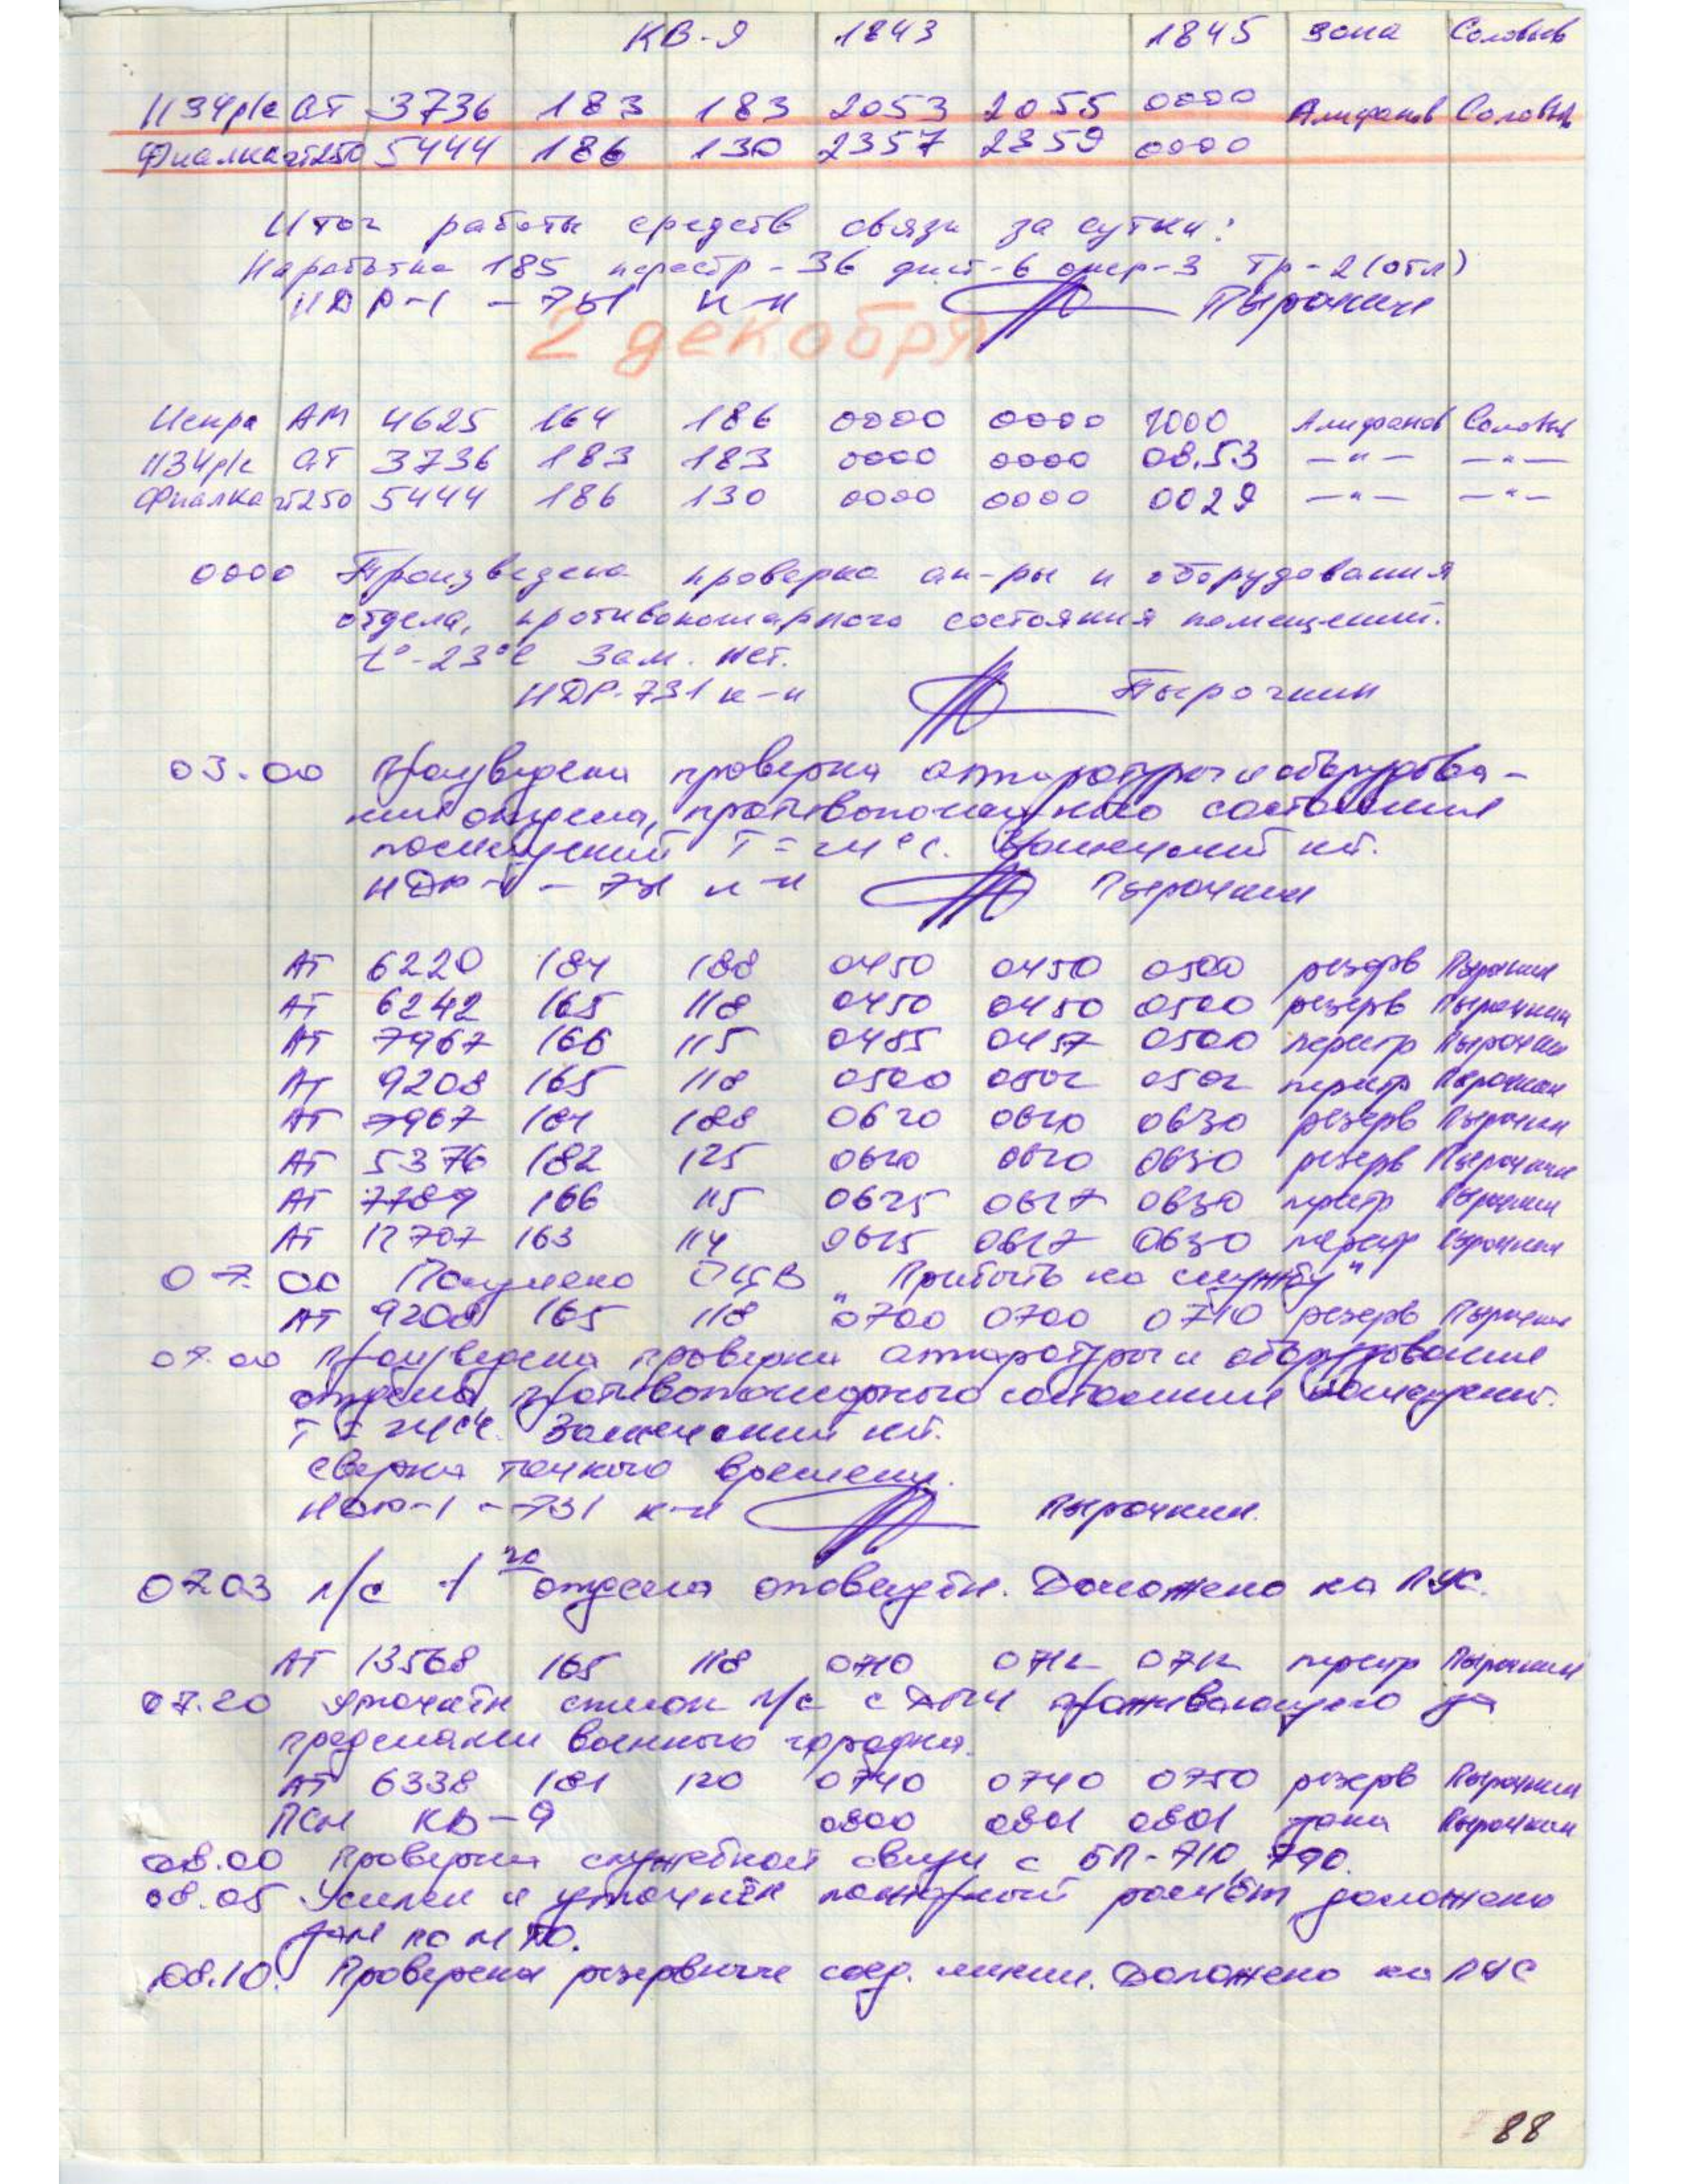 КВ-9 1843 1845 зона Соловьев
ПЗЧр/с АТ 3736 183 183 2053 2055 0000 Алифанов Соловьев
Фиалка АТ250 5444 186 130 2357 2359 0000
Итог работы средств связи за сутки:
Наработка 185 перестр-36 дист-6 опер-3 Тр-2(отл)
НДР-1 - 731 к-н Пырочкин
2 декабря
Искра АМ 4625 164 186 0000 0000 1000 Алифанов Соловьев
ПЗЧр/с АТ 3736 183 183 0000 0000 08.53 —"— —"—
Фиалка АТ250 5444 186 130 0000 0000 0029 —"— —"—
0000 Произведена проверка ап-ры и оборудования
отдела, противопожарного состояния помещений.
t°-23°С Зам. нет.
НДР-731 к-н Пырочкин
03.00 Произведена проверка аппаратуры и оборудова-
ния отдела, противопожарного состояния
помещений Т = 24°С. Замечаний нет.
НДР-1 - 731 к-н Пырочкин
АТ 6220 184 188 0450 0450 0500 резерв Пырочкин
АТ 6242 165 118 0450 0450 0500 резерв Пырочкин
АТ 7967 166 115 0455 0457 0500 перестр Пырочкин
АТ 9208 165 118 0500 0502 0502 перестр Пырочкин
АТ 7967 184 188 0620 0620 0630 резерв Пырочкин
АТ 5376 182 125 0620 0620 0630 резерв Пырочкин
АТ 7789 166 115 0625 0627 0630 перестр Пырочкин
АТ 12707 163 114 0625 0627 0630 перестр Пырочкин
07.00 Получено "Прибыть на службу"
АТ 9208 165 118 0700 0700 0710 резерв Пырочкин
07.00 Произведена проверка аппаратуры и оборудования
отдела, противопожарного состояния помещений.
Т = 24°С. Замечаний нет.
Сверка точного времени.
НДР-1 - 731 к-н Пырочкин.
0703 л/с 1го отдела оповещён. Доложено на ПУС.
АТ 13568 165 118 0710 0712 0712 перестр Пырочкин
07.20 Уточнён список л/с проживающего за
пределами военного городка.
АТ 6338 181 120 0740 0740 0750 резерв Пырочкин
ПСМ КВ-9 0800 0801 0801 зона Пырочкин
08.00 Проверка служебной связи с БП-710, 790.
08.05 Усилен и уточнён пожарный расчёт доложено
по МТО.
08.10. Проверены резервные соед. линии. Доложено на ПУС
88